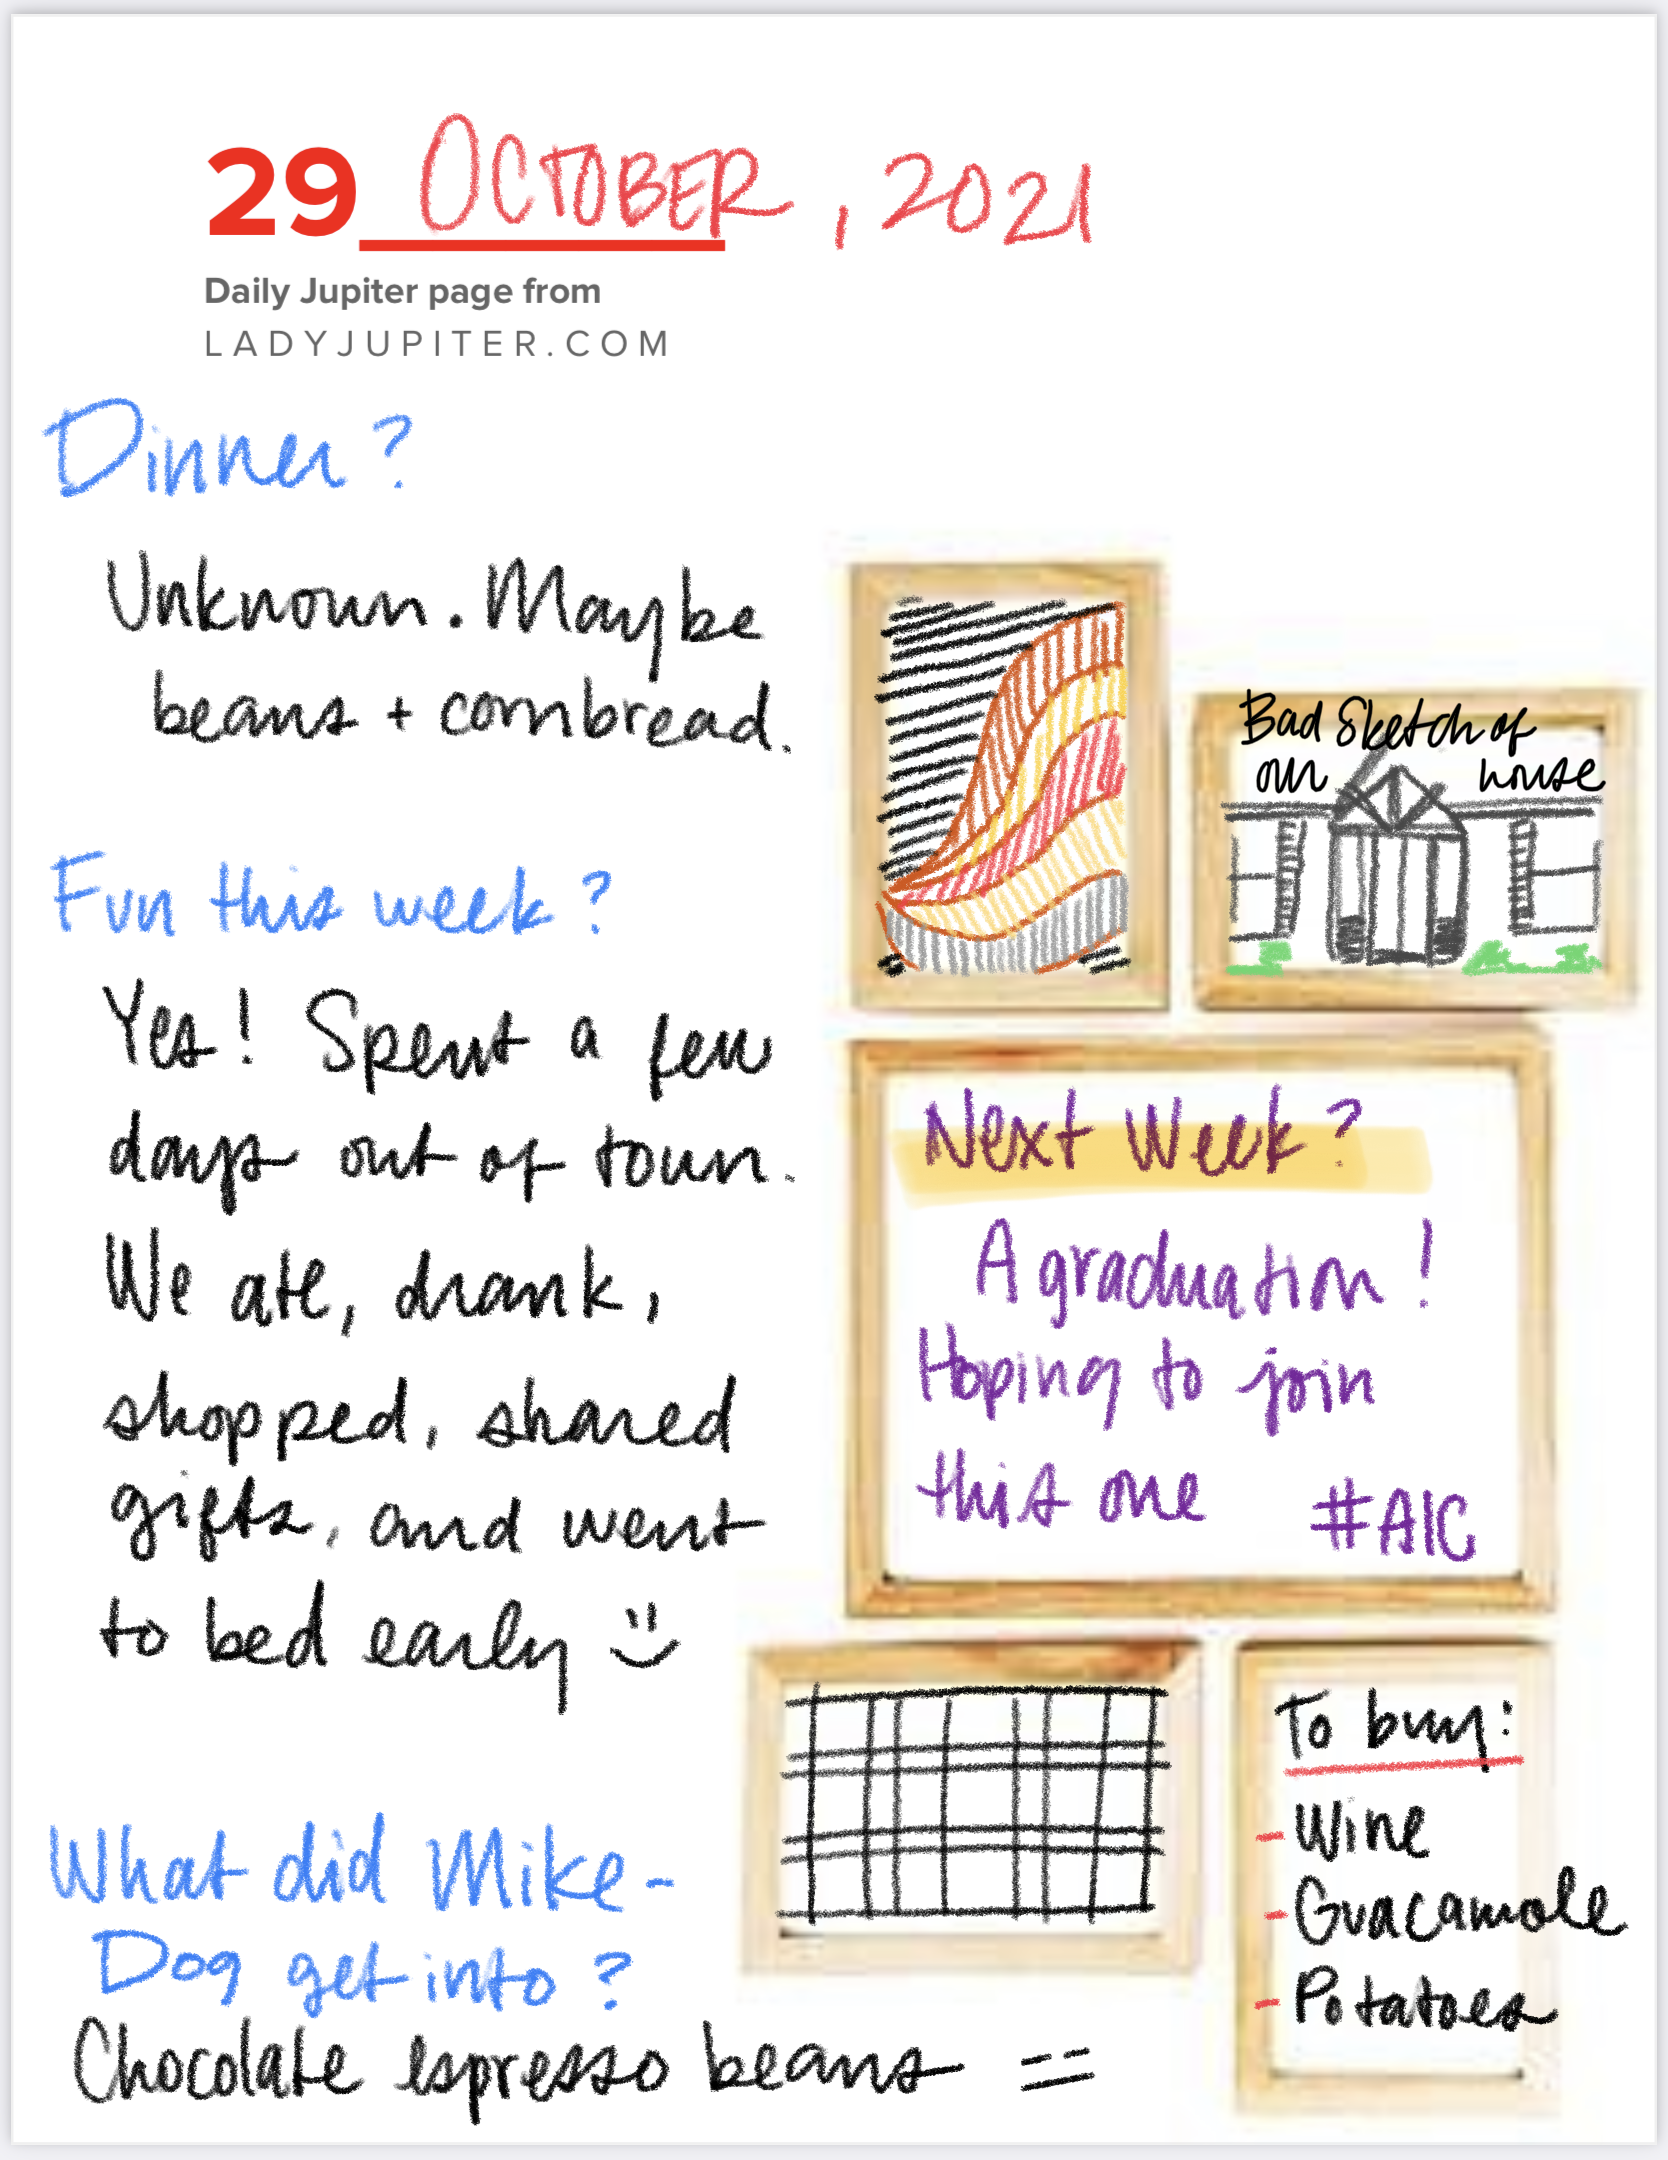 29 OCTOBER, 2021
Daily Jupiter page from
LADYJUPITER.COM
Dinner?
Unknown. Maybe
beans + cornbread.
Fun this week?
Yes! Spent a few
days out of town.
We ate, drank,
shopped, shared
gifts, and went
to bed early
What did Mike-
Dog get into?
Chocolate espresso beans
Bad Sketch of
our house
Next Week?
A graduation!
Hoping to join
this one #AIC
To buy:
- Wine
- Guacamole
- Potatoes